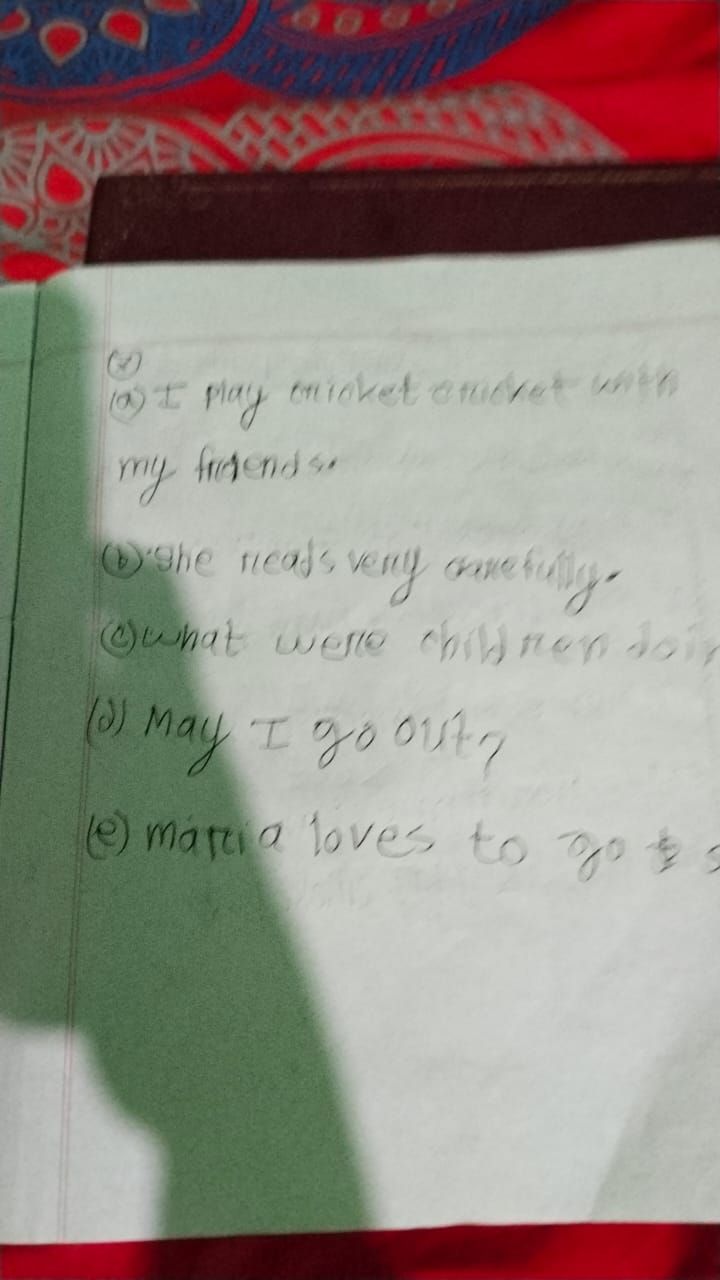 (a) I play cricket cricket with
my friends.
(b) She reads very carefully.
(c) what were children doin
(d) May I go out?
(e) maria loves to go